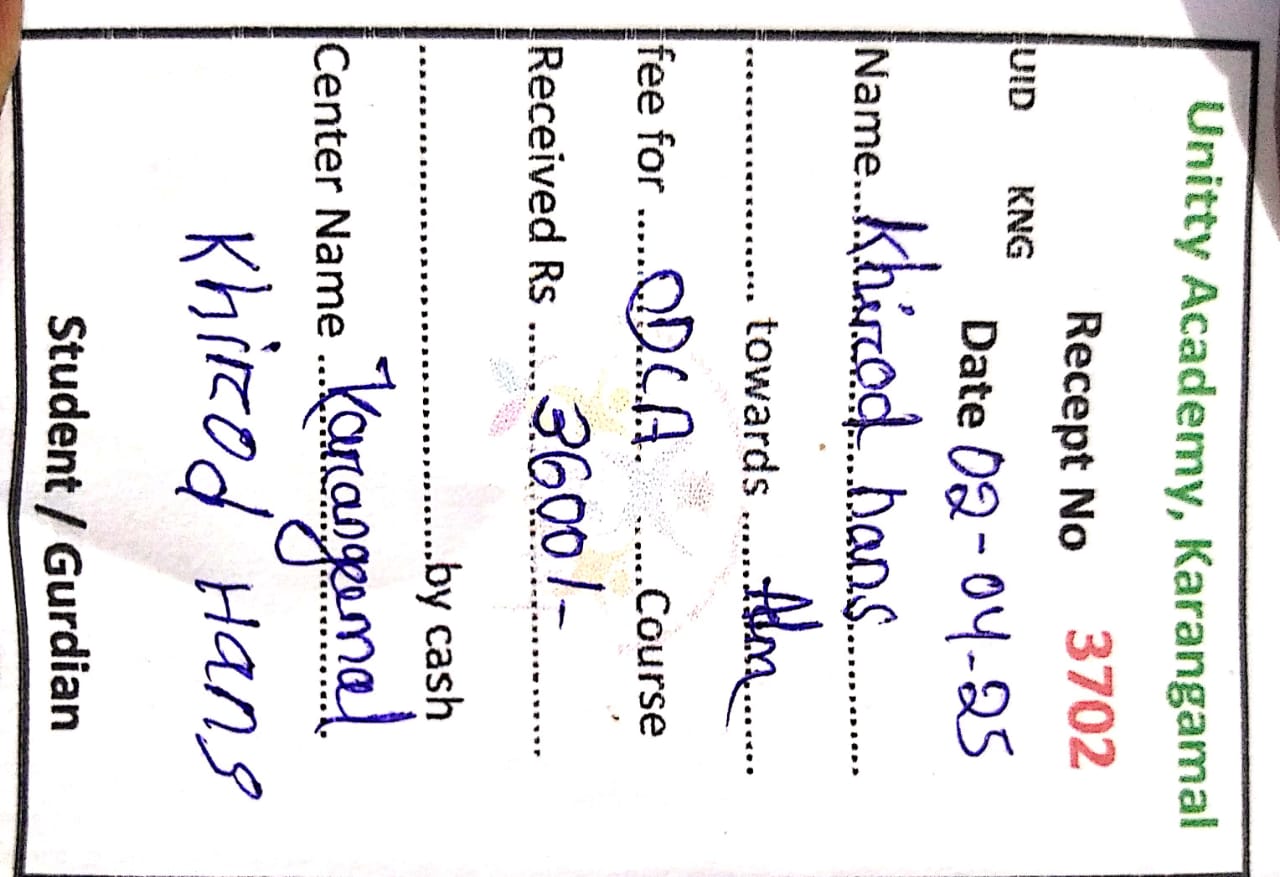 Unitty Academy, Karangamal
Recept No 3702
UID KNG
Date 02-04-25
Name...Khirod hans............
........................ towards .......Adm.......
fee for ......ODCA..........Course
Received Rs ......3600/-..............
................................................by cash
Center Name ....Karangamal.
Khirod Hans
Student / Gurdian